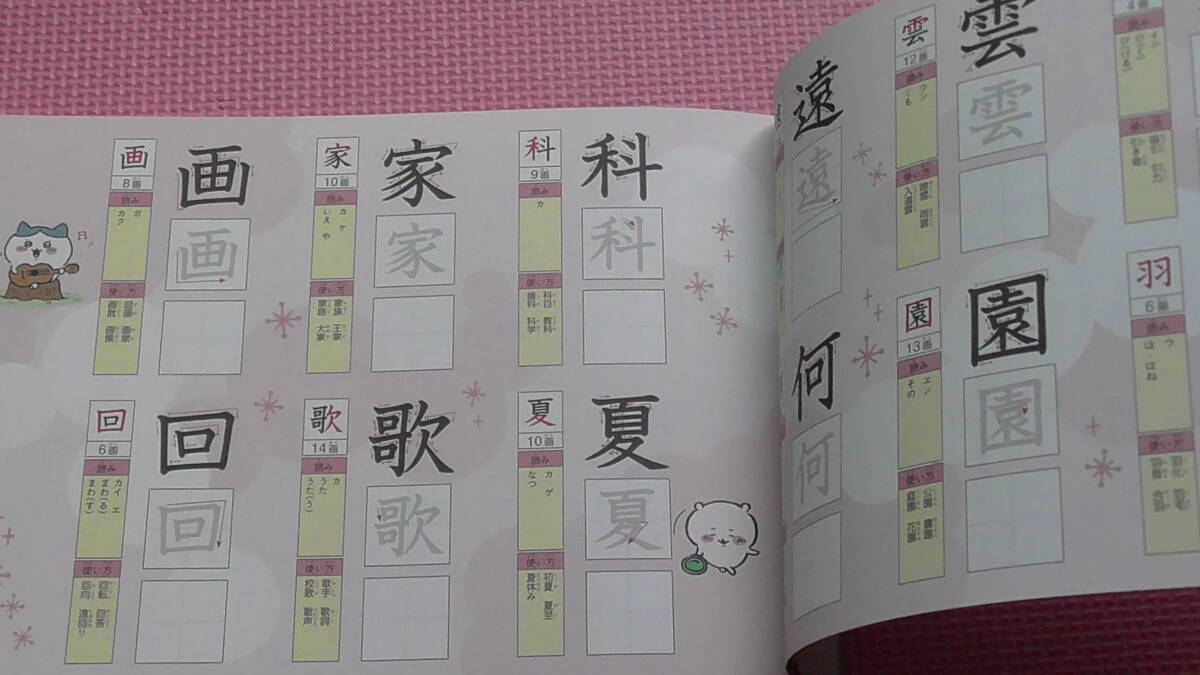 羽
6画
読み
ウ
は はね
使い方
雲
12画
読み
ウン
くも
使い方
雨雲
入道雲
雲
雲
園
13画
読み
エン
その
使い方
公園 農園
庭園 花園
園
園
遠
遠
何
何
科
9画
読み
カ
使い方
科目 教科
歯科 科学
科
科
夏
10画
読み
カ ゲ
なつ
使い方
初夏 夏至
夏休み
夏
夏
家
10画
読み
カ ケ
いえ や
使い方
家族 王家
家路 大家
家
家
歌
14画
読み
カ
うた
うた(う)
使い方
歌手 歌詞
校歌 歌声
歌
歌
画
8画
読み
ガ
カク
使い方
図画 画家
画数
画
画
回
6画
読み
カイ エ
まわ(る)
まわ(す)
使い方
回転 回答
回向 遠回り
回
回